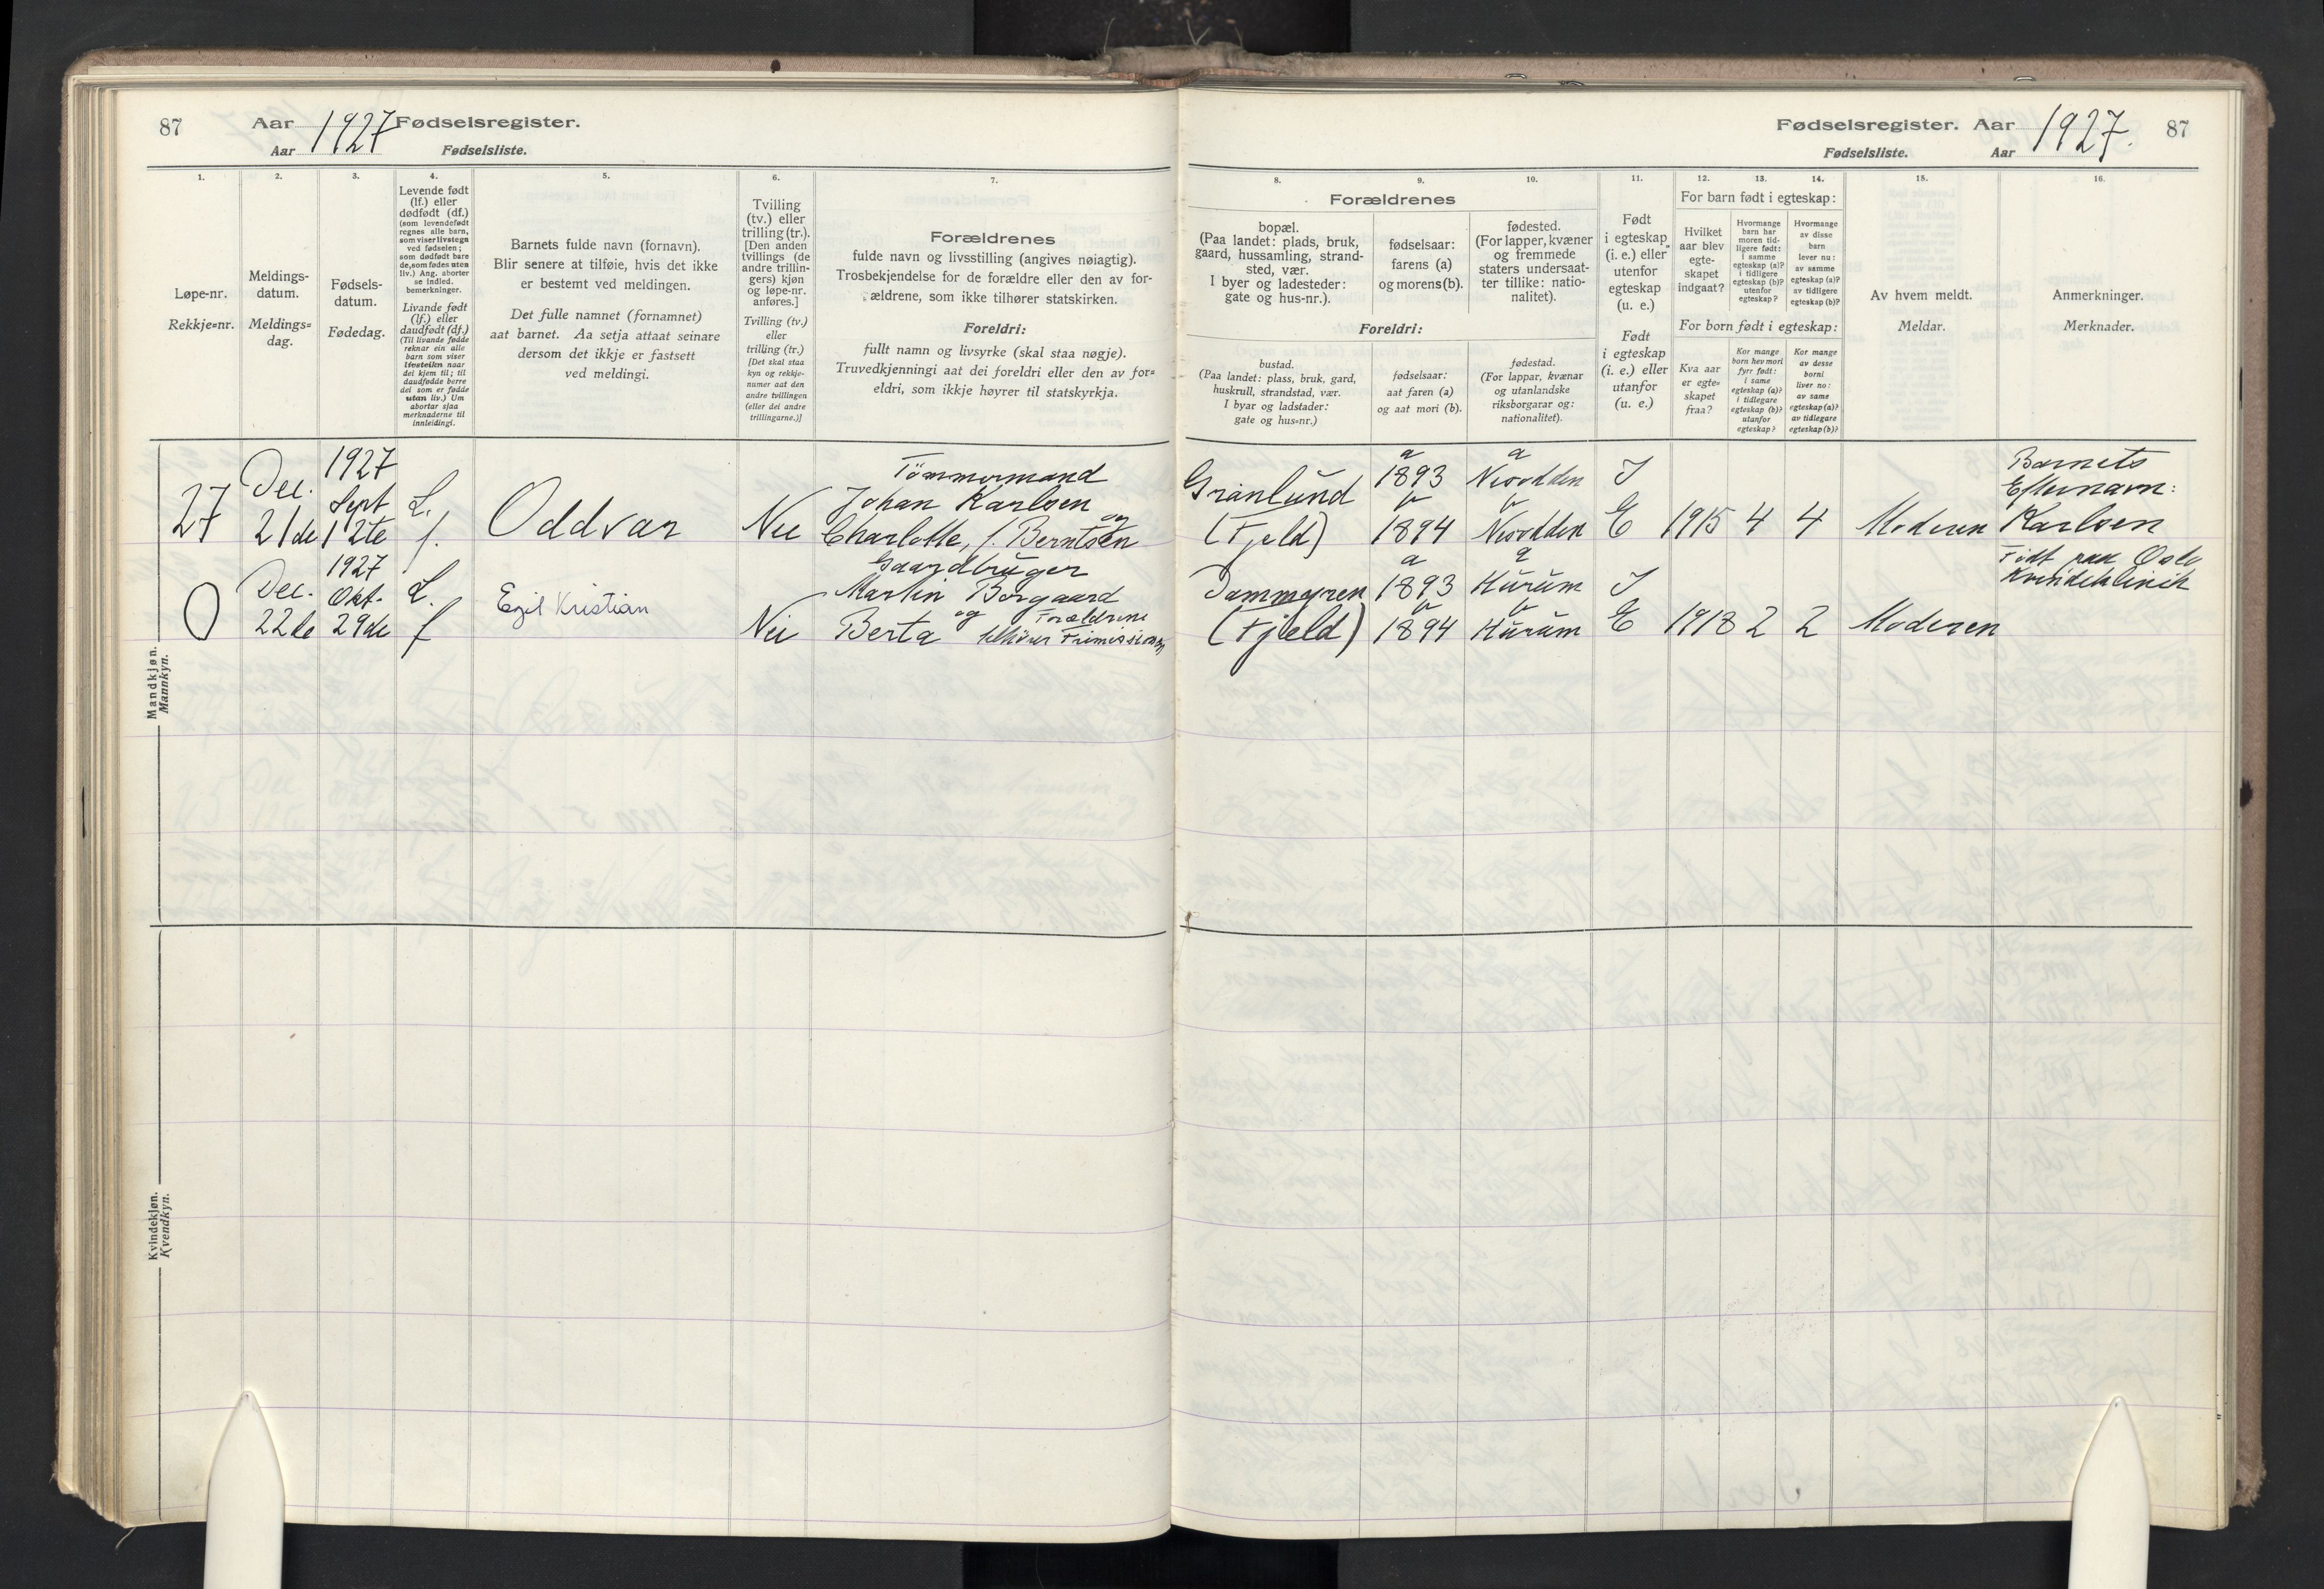 87
Aar 1927 Fødselsregister.
Aar
Fødselsliste.
1.
Løpe-nr.
Rekkje=nr.
2.
Meldings-
datum.
Meldings=
dag.
3.
Fødsels-
datum.
Fødedag.
4.
Levende født
(lf.) eller
dødfødt (df.)
(som levendefødt
regnes alle barn,
som viser livstegn
ved fødselen;
som dødfødt bare
de, som fødes uten
liv.) Ang. aborter
se indled.
bemerkninger.
Livande født
(lf.) eller
daudfødt (df.)
(Til livande fødde
reknar ein alle
barn som viser
livsteikn naar
dei kjem til; til
daudfødde berre
dei som er fødde
utan liv.) Um
abortar sjaa
merknaderne til
innleidingi.
5.
Barnets fulde navn (fornavn).
Blir senere at tilføie, hvis det ikke
er bestemt ved meldingen.
Det fulle namnet (fornamnet)
aat barnet. Aa setja attaat seinare
dersom det ikkje er fastsett
ved meldingi.
6.
Tvilling
(tv.) eller
trilling (tr.).
[Den anden
tvillings (de
andre trillin-
gers) kjøn
og løpe-nr.
anføres.]
Tvilling (tv.)
eller
trilling (tr.)
[Det skal staa
kyn og rekkje-
numer aat den
andre tvillingen
(eller dei andre
trillingarne.)]
7.
Forældrenes
fulde navn og livsstilling (angives nøiagtig).
Trosbekjendelse for de forældre eller den av for-
ældrene, som ikke tilhører statskirken.
Foreldri:
fullt namn og livsyrke (skal staa nøgje).
Truvedkjenningi aat dei foreldri eller den av for=
eldri, som ikkje høyrer til statskyrkja.
Fødselsregister. Aar 1927. 87
Fødselsliste.
Aar
8.
Forældrenes
bopæl.
(Paa landet: plads, bruk,
gaard, hussamling, strand-
sted, vær.
I byer og ladesteder:
gate og hus-nr.).
Foreldri:
bustad.
(Paa landet: plass, bruk, gard,
huskrull, strandstad, vær.
I byar og ladstader:
gate og hus=nr.)
9.
fødselsaar:
farens (a)
og morens (b).
fødselsaar:
aat faren (a)
og aat mori (b).
10.
fødested.
(For lapper, kvæner
og fremmede
staters undersaat-
ter tillike: natio-
nalitet).
fødestad.
(For lappar, kvænar
og utanlandske
riksborgarar og:
nationalitet).
11.
Født
i egteskap
(i. e.) eller
utenfor
egteskap
(u. e.)
Født
i egteskap
(i. e.) eller
utanfor
(u. e.)
12. 13. 14.
For barn født i egteskap:
Hvilket
aar blev
egte-
skapet
indgaat?
Hvormange
barn har
moren tid-
ligere født:
i samme
egteskap (a)?
i tidligere
egteskap (b)?
utenfor
egteskap?
Hvormange
av disse
barn
lever nu:
av samme
egteskap (a)?
av tidligere
egteskap (b)?
For born født i egteskap:
Kva aar
er egte=
skapet
fraa?
Kor mange
born hev mori
fyrr født:
i same
egteskap (a)?
i tidlegare
egteskap (b)?
utanfor
egteskap?
Kor mange
av desse
borni
liver no:
av same
egteskap (a)?
av tidlegare
egteskap (b)?
15.
Av hvem meldt.
Meldar.
16.
Anmerkninger.
Merknader.
Mandkjøn.
Mannkyn.
27
Dec.
21de
1927
Sept
12te
L.
f.
Oddvar
Nei
Tömmermand
Johan Karlsen
og
Charlotte, f. Berntsen
Granlund
(Fjeld)
a
1893
b
1894
a
Nesodden
b
Nesodden
I
E
1915 4 4
Moderen
Barnets
Efternavn:
Karlsen
0
Dec.
22de
1927
Okt.
29de
L.
f
Egil Kristian
Nei
Gaardbruger
Martin Borgaard
og Forældrene
Berta tilhører Frimissionen
Dammyren
(Fjeld)
a
1893
b
1894
a
Hurum
b
Hurum
I
E
1918 2 2
Moderen
Født paa Oslo
Kvindeklinik
Kvindekjøn.
Kvendkyn.